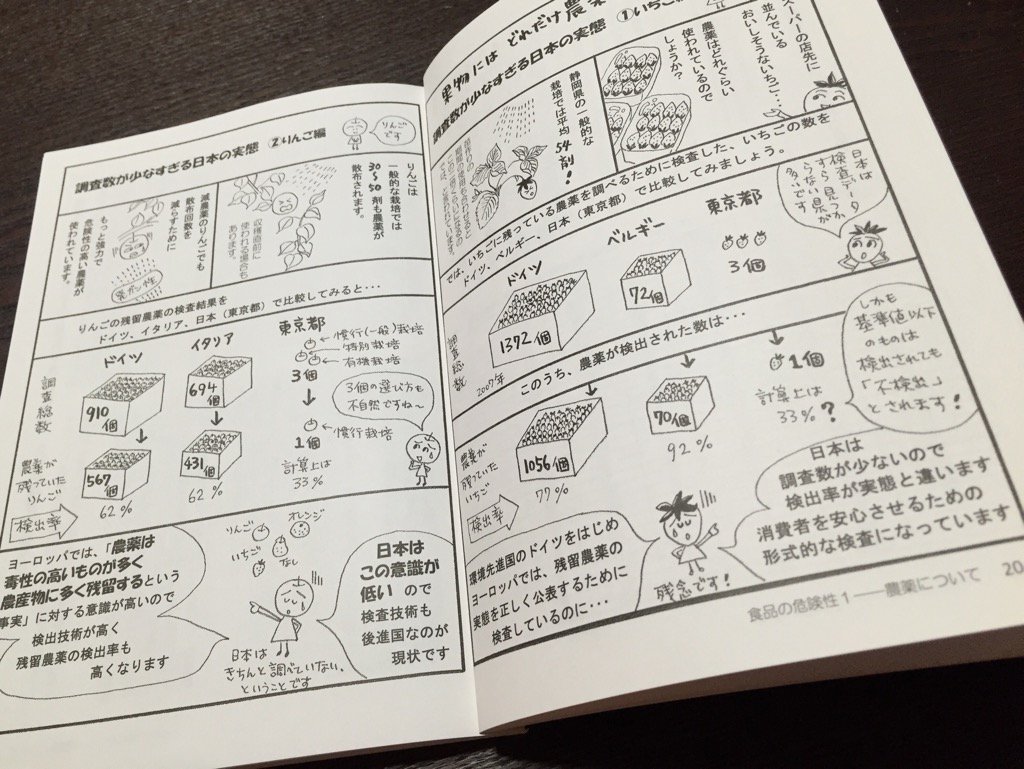 果物には どれだけ農薬
調査数が少なすぎる日本の実態 ①いちご
スーパーの店先に
並んでいる
おいしそうないちご…
農薬はどれぐらい
使われているので
しょうか？
静岡県の一般的な
栽培では平均
54剤！
では、いちごに残っている農薬を調べるために検査した、いちごの数を
ドイツ、ベルギー、日本（東京都）で比較してみましょう。
日本は
検査データ
すら見つか
らない県が
多いです
ドイツ
ベルギー
東京都
1392個
72個
3個
調査総数
2007年
このうち、農薬が検出された数は…
しかも
基準値以下
のものは
検出されても
「不検出」
とされます！
農薬が
残っていた
いちご
1056個
70個
1個
計算上は
33%？
検出率
77%
92%
環境先進国のドイツをはじめ
ヨーロッパでは、残留農薬の
実態を正しく公表するために
検査しているのに…
残念です！
日本は
調査数が少ないので
検出率が実態と違います
消費者を安心させるための
形式的な検査になっています
食品の危険性1――農薬について 20
調査数が少なすぎる日本の実態 ②りんご編
りんご
です
りんごは
一般的な栽培では
30〜50剤も農薬が
散布されます。
収穫直前に
使われる場合も
あります。
減農薬のりんごでも
散布回数を
減らすために
もっと強力で
危険性の高い農薬が
使われています。
発ガン性
りんごの残留農薬の検査結果を
ドイツ、イタリア、日本（東京都）で比較してみると…
ドイツ
イタリア
東京都
慣行（一般）栽培
特別栽培
有機栽培
調査総数
910個
694個
3個
3個の選び方も
不自然ですね〜
農薬が
残っていた
りんご
567個
431個
1個
慣行栽培
計算上は
33%
検出率
62%
62%
ヨーロッパでは、「農薬は
毒性の高いものが多く
農産物に多く残留するという
事実」に対する意識が高いので
検出技術が高く
残留農薬の検出率も
高くなります
りんご
オレンジ
いちご
なし
日本は
きちんと調べていない、
ということです
日本は
この意識が
低いので
検査技術も
後進国なのが
現状です